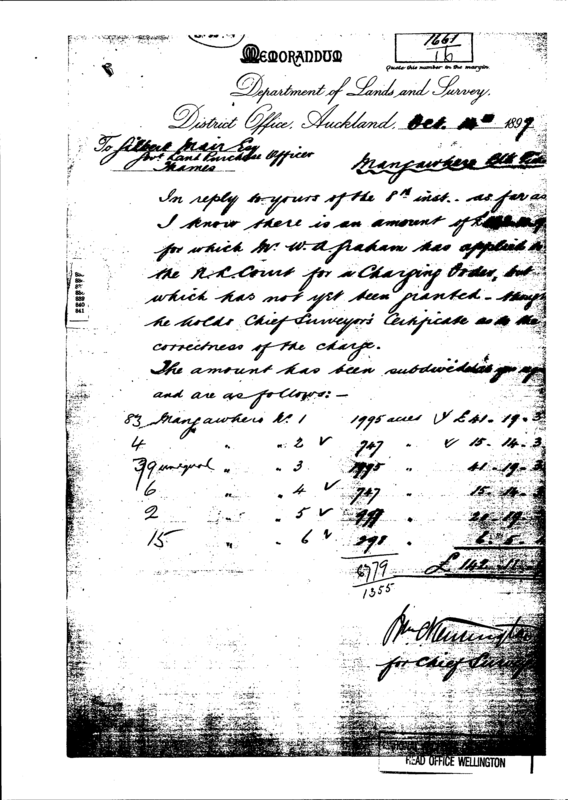 1661
16
Quote this number in the margin.
MEMORANDUM
Department of Lands and Survey,
District Office, Auckland, Oct. 1899
To Gilbert Mair Esq
Govt Land Purchase Officer
Thames
Mangawhero Blk
In reply to yours of the 8th inst. as far as
I know there is an amount of £
for which Mr. W. A. Graham has applied to
the N. L. Court for a Charging Order, but
which has not yet been granted - though
he holds Chief Surveyor's Certificate as to the
correctness of the charge.
The amount has been subdivided as you
and are as follows: -
83 Mangawhero No. 1 1995 acres √ £41-19-3
4 " " 2 √ 747 " √ 15-14-3
39 unequal " " 3 1995 " 41-19-3
6 " " 4 √ 747 " 15-14-3
2 " " 5 √ "
15 " " 6 √ 298 " 6-5-
6779 £142-11-
1355
for Chief Surveyor
HEAD OFFICE WELLINGTON